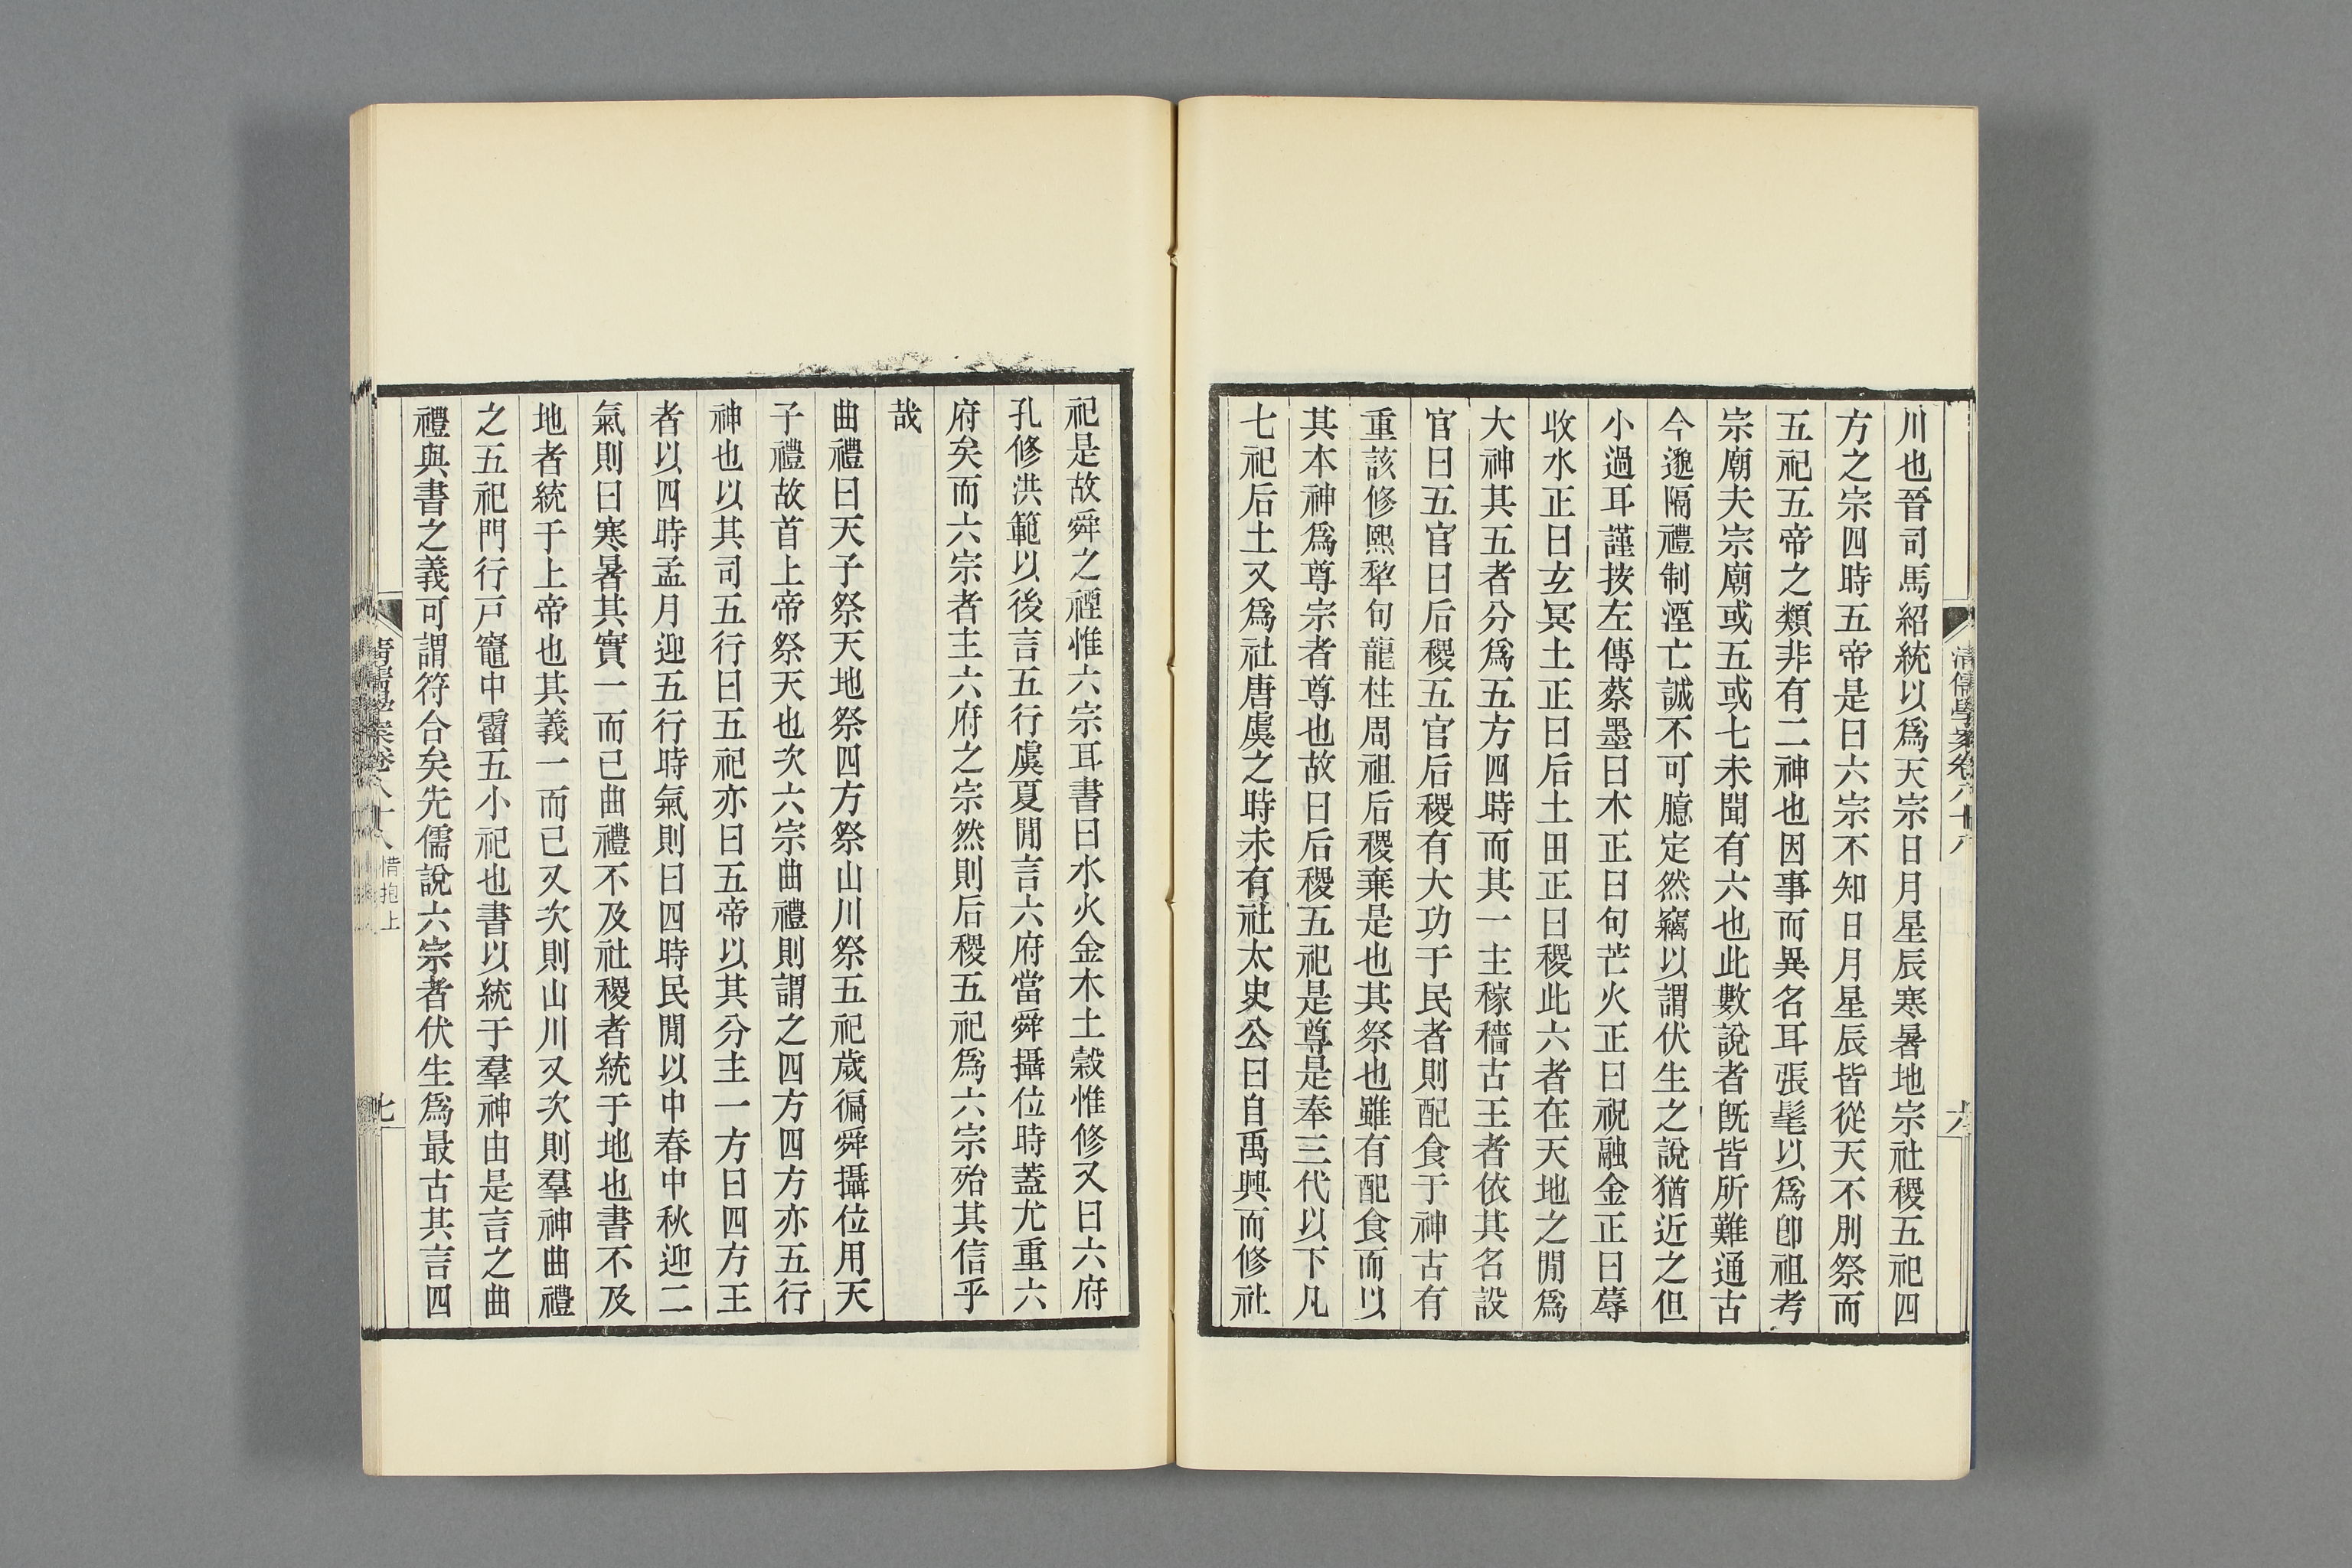 川也晉司馬紹統以爲天宗日月星辰寒暑地宗社稷五祀四
方之宗四時五帝是曰六宗不知日月星辰皆從天不別祭而
五祀五帝之類非有二神也因事而異名耳張髦以爲卽祖考
宗廟夫宗廟或五或七未聞有六也此數說者旣皆所難通古
今邈隔禮制湮亡誠不可臆定然竊以謂伏生之說猶近之但
小過耳謹按左傳蔡墨曰木正曰句芒火正曰祝融金正曰蓐
收水正曰玄冥土正曰后土田正曰稷此六者在天地之閒爲
大神其五者分爲五方四時而其一主稼穡古王者依其名設
官曰五官曰后稷五官后稷有大功于民者則配食于神古有
重該修熙犂句龍柱周祖后稷棄是也其祭也雖有配食而以
其本神爲尊宗者尊也故曰后稷五祀是尊是奉三代以下凡
七祀后土又爲社唐虞之時未有社太史公曰自禹興而修社
清儒學案卷八十八
六
祀是故舜之禋惟六宗耳書曰水火金木土穀惟修又曰六府
孔修洪範以後言五行虞夏閒言六府當舜攝位時蓋尤重六
府矣而六宗者主六府之宗然則后稷五祀爲六宗殆其信乎
哉
曲禮曰天子祭天地祭四方祭山川祭五祀歲徧舜攝位用天
子禮故首上帝祭天也次六宗曲禮則謂之四方四方亦五行
神也以其司五行曰五祀亦曰五帝以其分主一方曰四方王
者以四時孟月迎五行時氣則曰四時民閒以中春中秋迎二
氣則曰寒暑其實一而已曲禮不及社稷者統于地也書不及
地者統于上帝也其義一而已又次則山川又次則羣神曲禮
之五祀門行戸竈中霤五小祀也書以統于羣神由是言之曲
禮與書之義可謂符合矣先儒說六宗者伏生爲最古其言四
清儒學案卷八十八 惜抱上
七